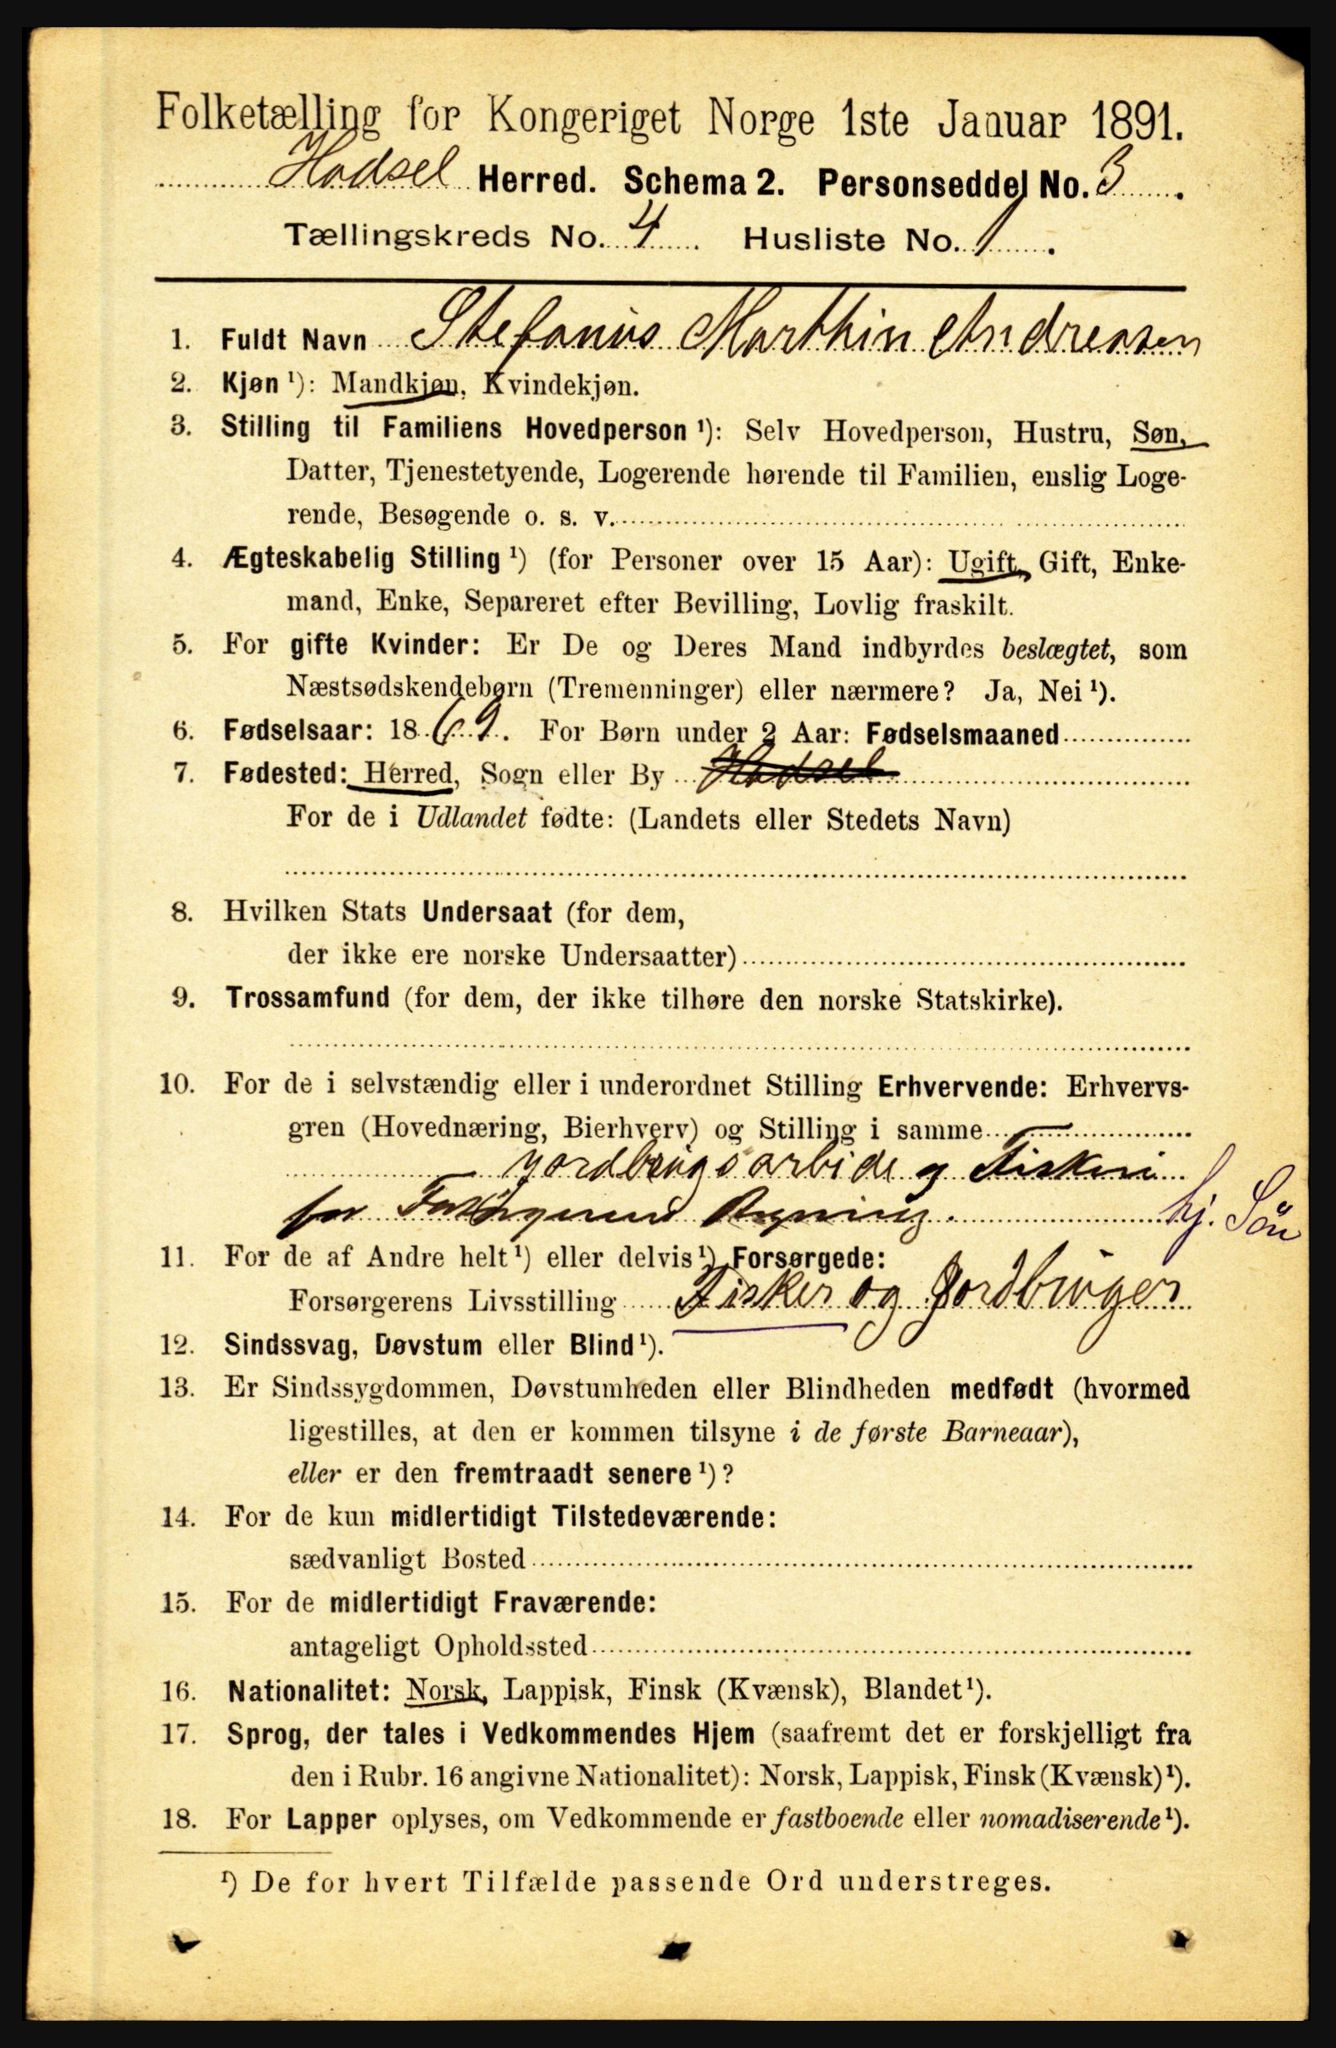 Folketælling for Kongeriget Norge 1ste Januar 1891.
Hadsel Herred. Schema 2. Personseddel No. 3.
Tællingskreds No. 4. Husliste No. 1.
1. Fuldt Navn Stefanus Marthin Andreasen
2. Kjøn ¹): Mandkjøn, Kvindekjøn.
3. Stilling til Familiens Hovedperson ¹): Selv Hovedperson, Hustru, Søn,
Datter, Tjenestetyende, Logerende hørende til Familien, enslig Loge-
rende, Besøgende o. s. v.
4. Ægteskabelig Stilling ¹) (for Personer over 15 Aar): Ugift, Gift, Enke-
mand, Enke, Separeret efter Bevilling, Lovlig fraskilt.
5. For gifte Kvinder: Er De og Deres Mand indbyrdes beslægtet, som
Næstsødskendebørn (Tremenninger) eller nærmere? Ja, Nei ¹).
6. Fødselsaar: 1869. For Børn under 2 Aar: Fødselsmaaned
7. Fødested: Herred, Sogn eller By Hadsel
For de i Udlandet fødte: (Landets eller Stedets Navn)
8. Hvilken Stats Undersaat (for dem,
der ikke ere norske Undersaatter)
9. Trossamfund (for dem, der ikke tilhøre den norske Statskirke).
10. For de i selvstændig eller i underordnet Stilling Erhvervende: Erhvervs-
gren (Hovednæring, Bierhverv) og Stilling i samme
Jordbrugsarbide og Fiskeri
for Regning. hj. Søn
11. For de af Andre helt ¹) eller delvis ¹) Forsørgede:
Forsørgerens Livsstilling Fisker og Jordbruger
12. Sindssvag, Døvstum eller Blind ¹).
13. Er Sindssygdommen, Døvstumheden eller Blindheden medfødt (hvormed
ligestilles, at den er kommen tilsyne i de første Barneaar),
eller er den fremtraadt senere ¹)?
14. For de kun midlertidigt Tilstedeværende:
sædvanligt Bosted
15. For de midlertidigt Fraværende:
antageligt Opholdssted
16. Nationalitet: Norsk, Lappisk, Finsk (Kvænsk), Blandet ¹).
17. Sprog, der tales i Vedkommendes Hjem (saafremt det er forskjelligt fra
den i Rubr. 16 angivne Nationalitet): Norsk, Lappisk, Finsk (Kvænsk) ¹).
18. For Lapper oplyses, om Vedkommende er fastboende eller nomadiserende ¹).
¹) De for hvert Tilfælde passende Ord understreges.